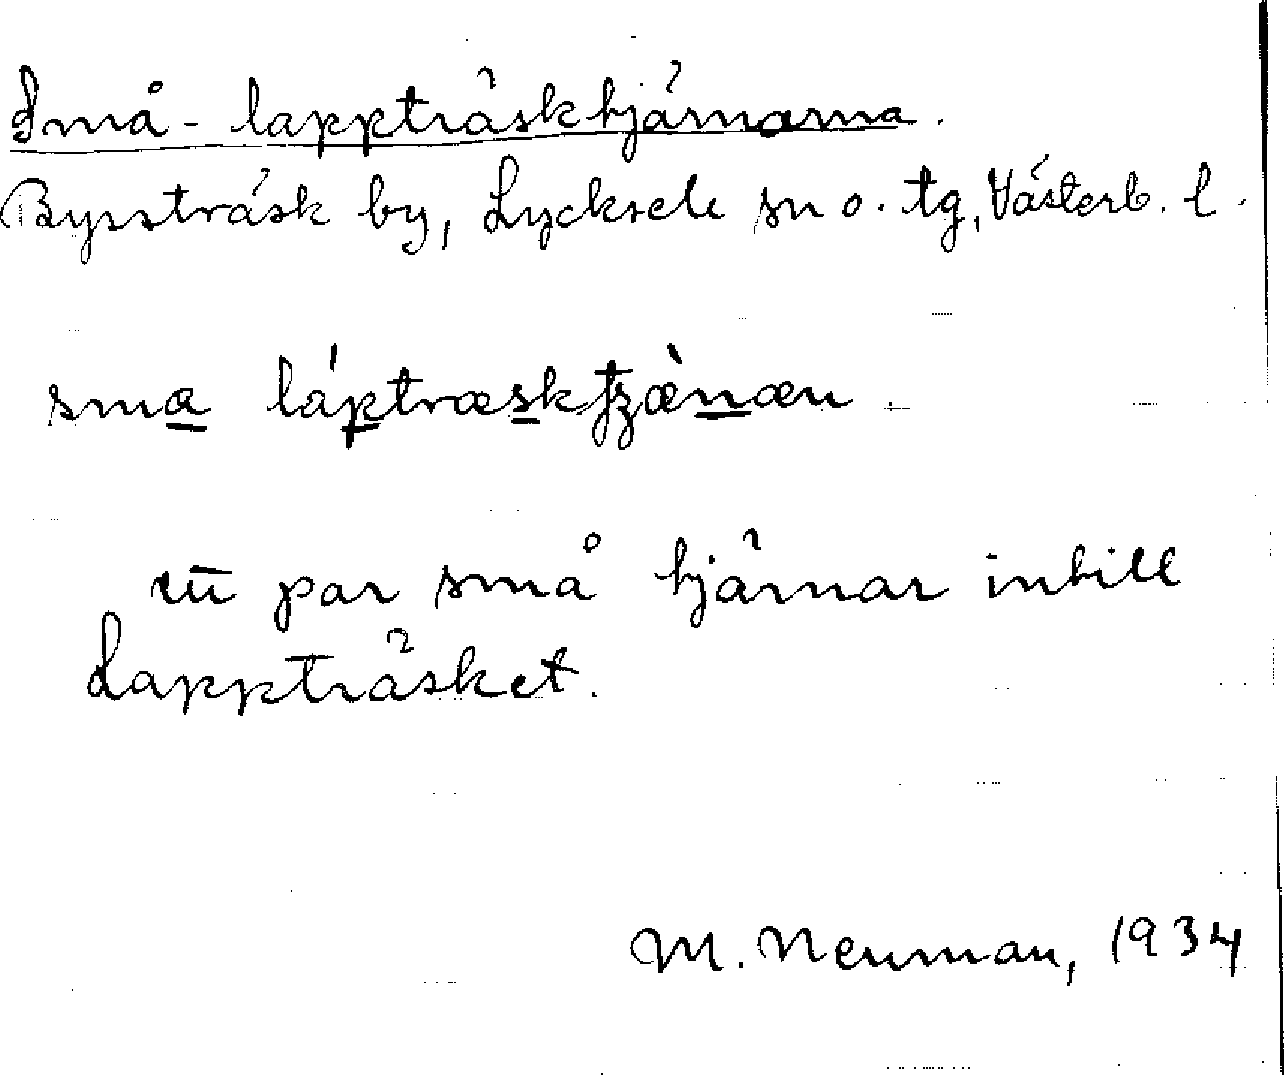 Små-lappträsktjärnarna.
Bysträsk by, Lycksele sn o. tg, Västerb. l.
sma láptræsktʒæ̀næn
ett par små tjärnar intill
Lappträsket.
M. Neuman, 1934